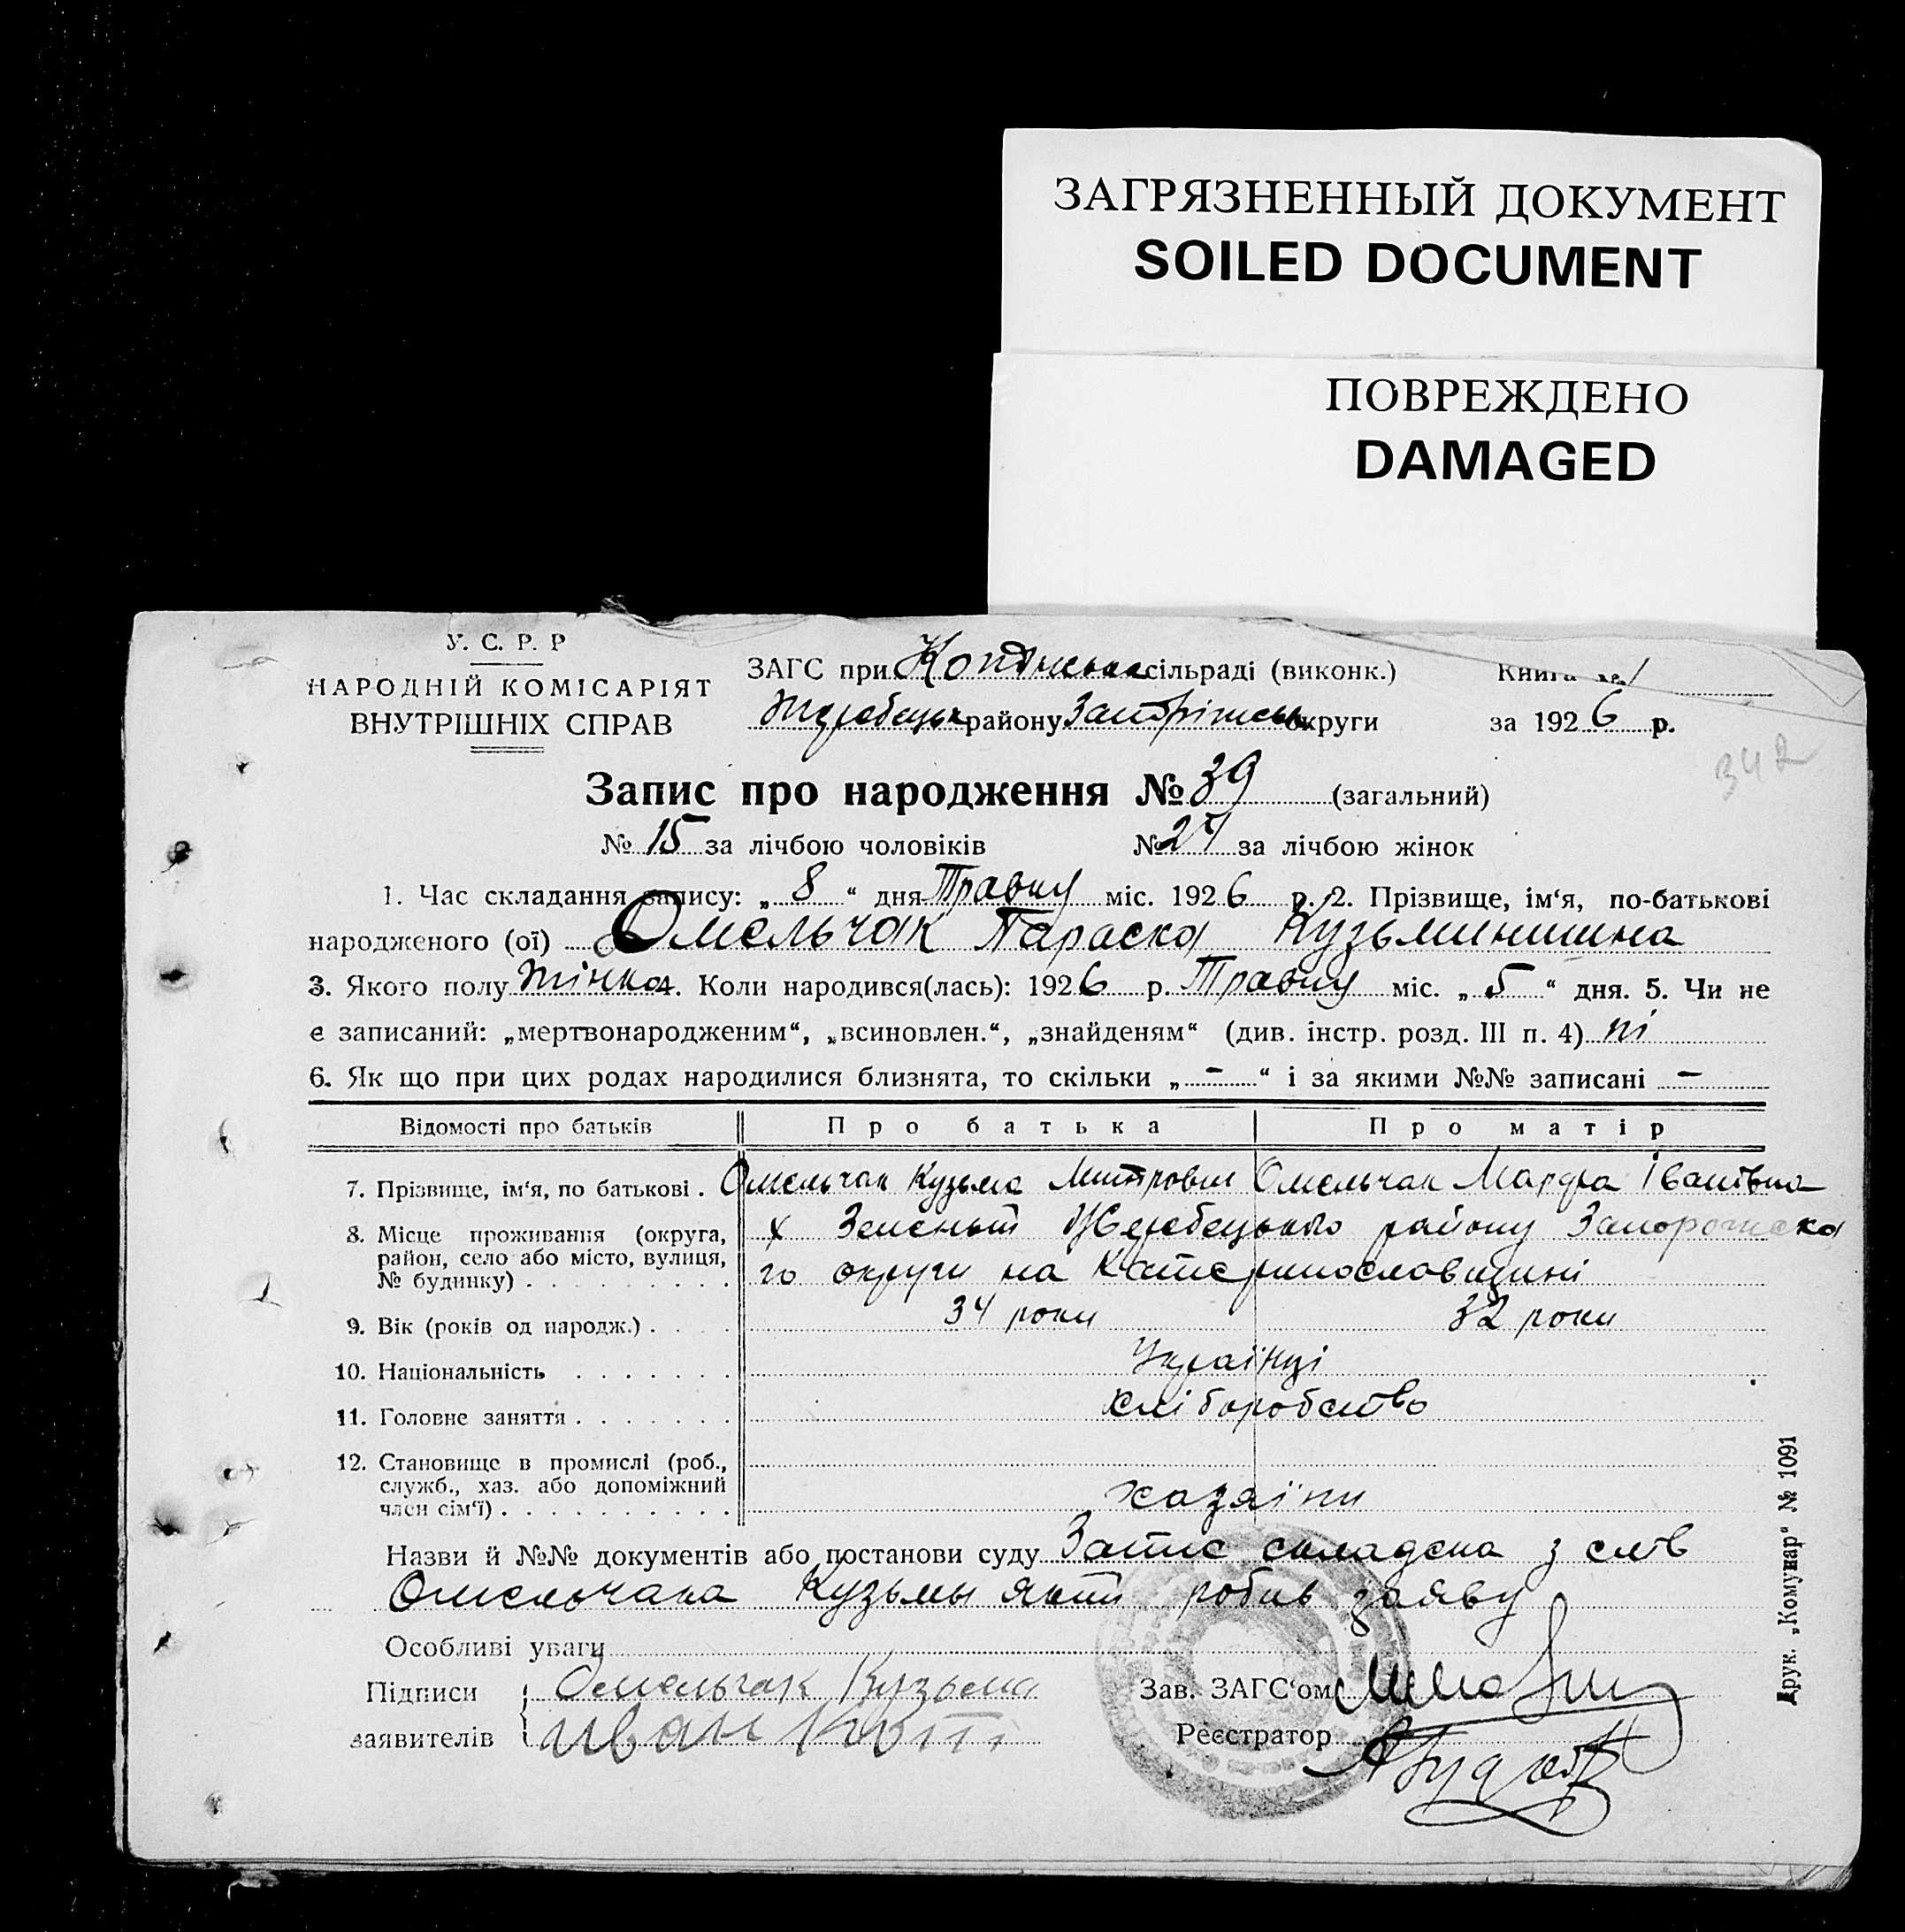 ЗАГРЯЗНЕННЫЙ ДОКУМЕНТ
SOILED DOCUMENT
ПОВРЕЖДЕНО
DAMAGED
У. С. Р. Р
НАРОДНІЙ КОМІСАРІЯТ
ВНУТРІШНІХ СПРАВ
ЗАГС при сільраді (виконк.)
Жеребецьк району Запоріжськ округи
Книга № 1
за 1926 р.
342
Запис про народження № 39 (загальний)
№ 15 за лічбою чоловіків № 24 за лічбою жінок
1. Час складання запису: „ 8 “ дня Травня міс. 1926 р. 2. Прізвище, ім‘я, по-батькові
народженого (ої) Омельчак Параска Кузьминишна
3. Якого полу жінка 4. Коли народився(лась): 1926 р. Травня міс. „ 5 “ дня. 5. Чи не
є записаний: „мертвонародженим“, „всиновлен.“, „знайденям“ (див. інстр. розд. III п. 4) ні
6. Як що при цих родах народилися близнята, то скільки „ - “ і за якими №№ записані -
Відомості про батьків Про батька Про матір
7. Прізвище, ім‘я, по батькові . Омельчак Кузьма Митрович Омельчак Марфа Іванівна
8. Місце проживання (округа,
район, село або місто, вулиця,
№ будинку) . . . . . . . . .
х Зелений Жеребецького району Запорожсько
го округи на Катеринославщині
9. Вік (років од народж.) . . . . 34 роки 32 роки
10. Національність . . . . . . . Українці
11. Головне заняття . . . . . . . хліборобство
12. Становище в промислі (роб.,
служб., хаз. або допоміжний
член сім‘ї) . . . . . . . . . . хазяїни
Назви й №№ документів або постанови суду Запис складена з слів
Омельчака Кузьмы який робив заяву
Особливі уваги
Підписи
заявителів
Омельчак Кузьма
Иван
Зав. ЗАГС‘ом
Реєстратор
Друк. „Комунар“ № 1091